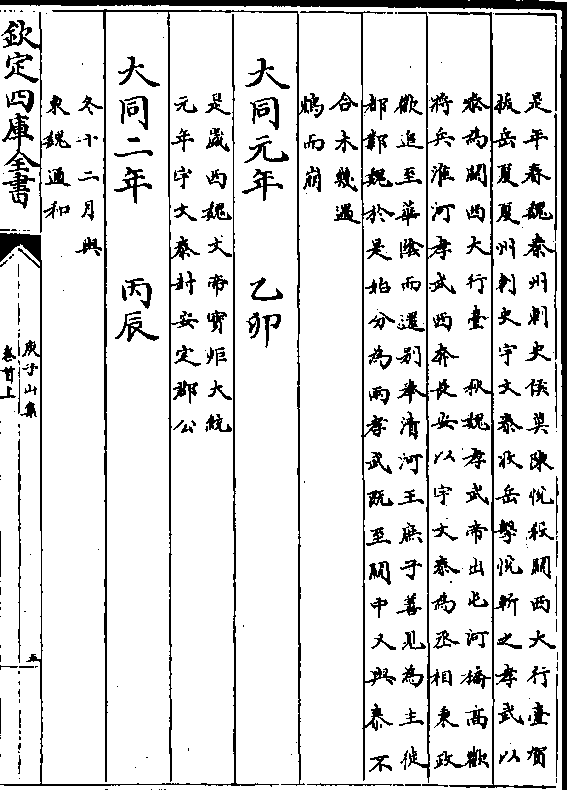 是年春魏秦州刺史侯莫陳悅殺關西大行臺賀
拔岳夏夏州刺史宇文泰收岳擊悅斬之孝武以
泰為關西大行臺 秋魏孝武帝出屯河橋高歡
將兵淮河孝武西奔長安以宇文泰為丞相秉政
歡追至華陰而還別奉清河王庶子善見為主徙
都鄴魏於是始分為兩孝武既至關中又與泰不
合未幾遇
鴆而崩
大同元年 乙卯
是歲西魏文帝寶炬大統
元年宇文泰封安定郡公
大同二年 丙辰
冬十二月與
東魏通和
欽定四庫全書
庾子山集
卷首上
五